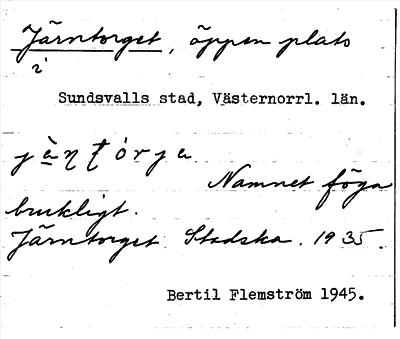 Järntorget, öppen plats
i
Sundsvalls stad, Västernorrl. län.
jä̀ƞ ţórja
Namnet föga
brukligt.
Järntorget. Stadska. 1935.
Bertil Flemström 1945.